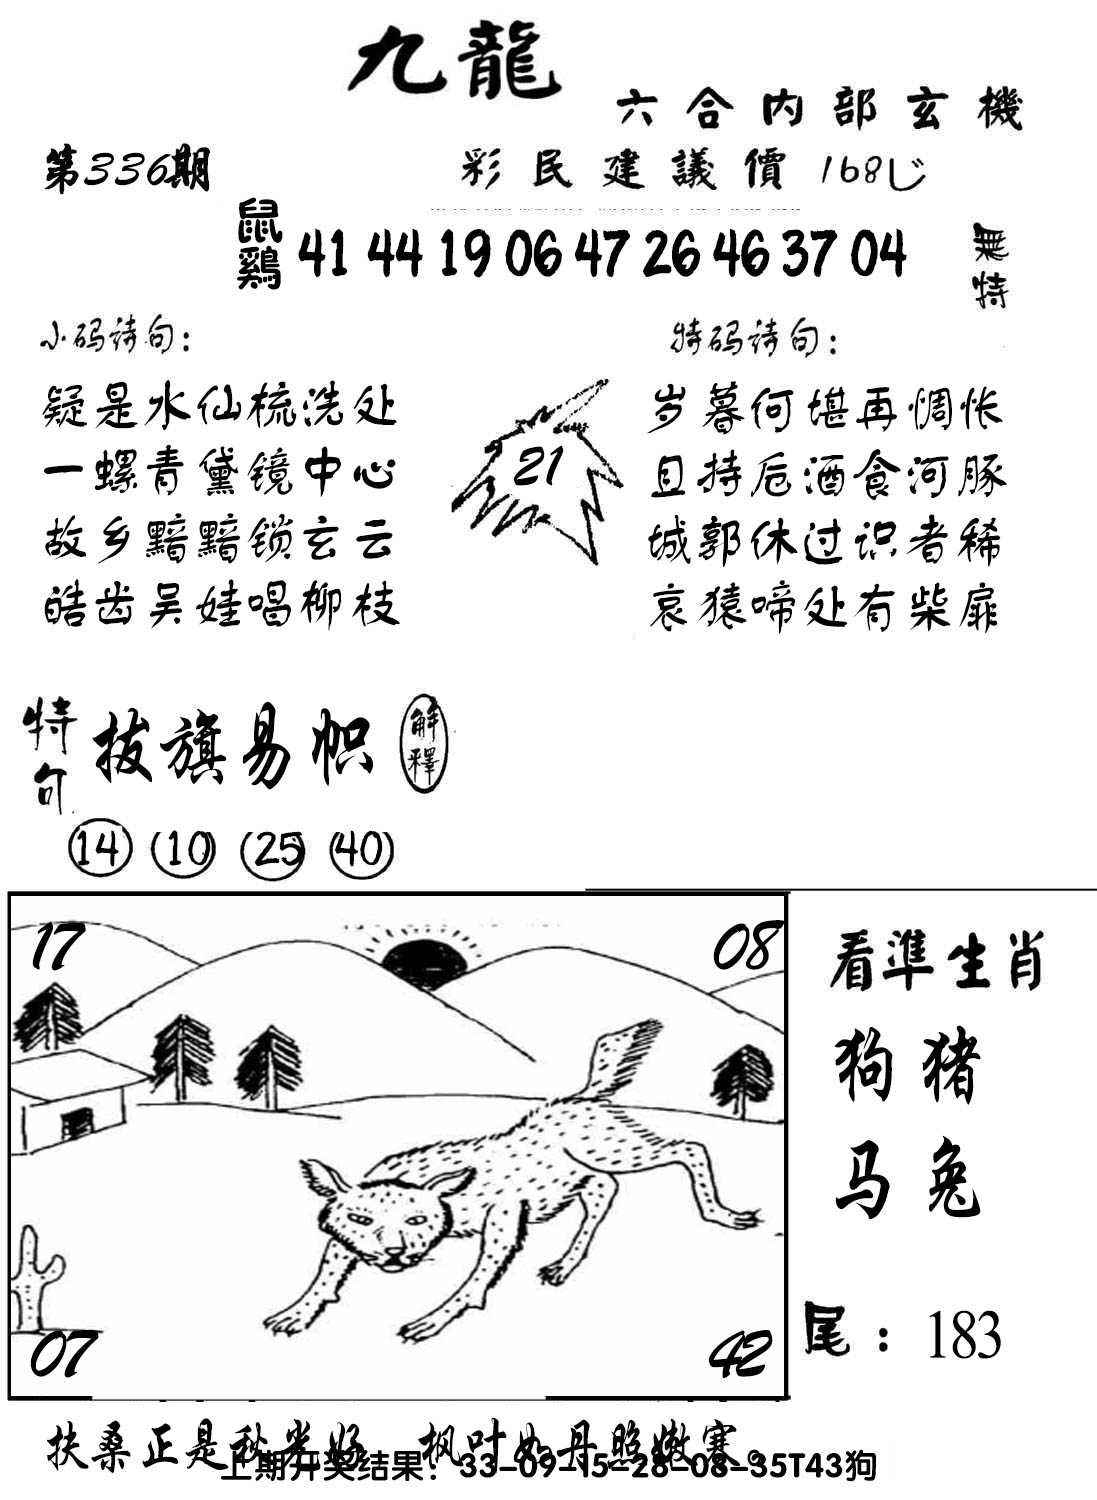 九龍
六合内部玄機
第336期
彩民建議價 168
鼠鷄 41 44 19 06 47 26 46 37 04
無特
小码诗句：
疑是水仙梳洗处
一螺青黛镜中心
故乡黯黯锁玄云
皓齿吴娃唱柳枝
21
特码诗句：
岁暮何堪再惆怅
且持卮酒食河豚
城郭休过识者稀
哀猿啼处有柴扉
特句
拔旗易帜
解釋
14 10 25 40
17 08
07 42
看準生肖
狗猪
马兔
尾：183
扶桑正是秋光好 枫叶如丹照嫩寒。
上期开奖结果：33-09-15-28-08-35T43狗